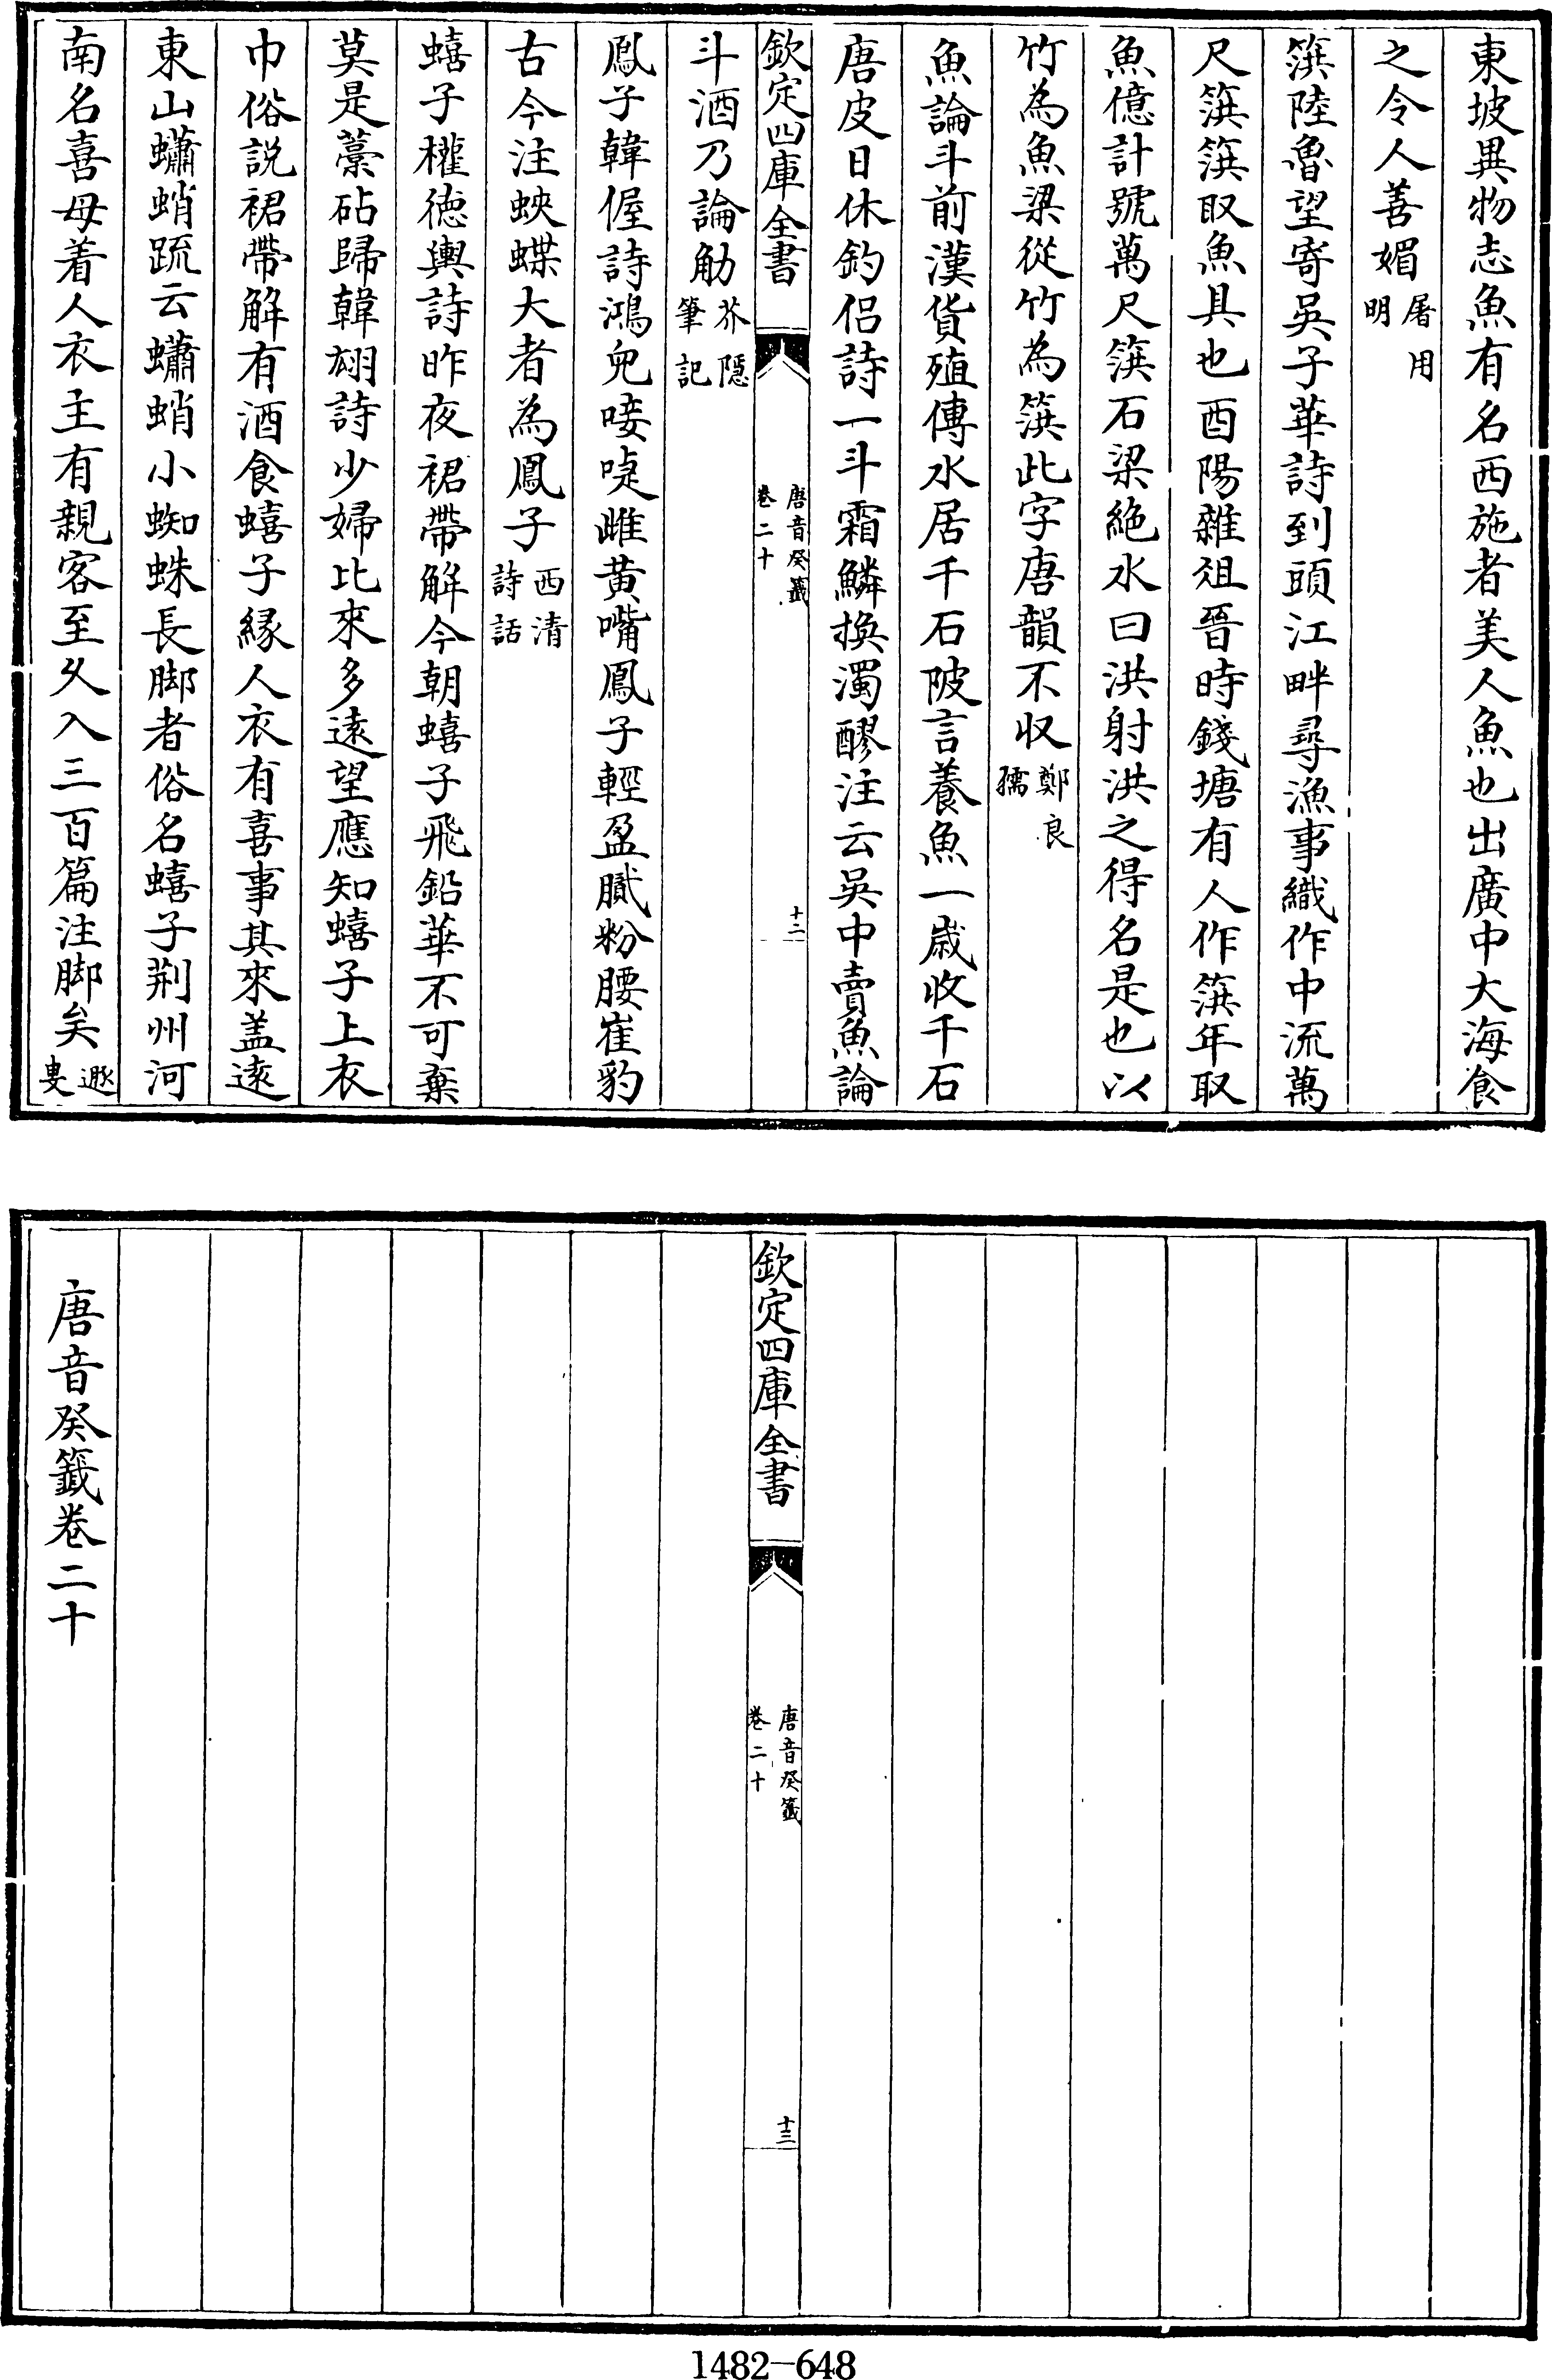 東坡異物志魚有名西施者美人魚也出廣中大海食
之令人善媚屠用明
篊陸魯望寄吳子華詩到頭江畔尋漁事織作中流萬
尺篊篊取魚具也酉陽雜俎晉時錢塘有人作篊年取
魚億計號萬尺篊石梁絶水曰洪射洪之得名是也以
竹為魚梁從竹為篊此字唐韻不收鄭良孺
魚論斗前漢貨殖傳水居千石陂言養魚一嵗收千石
唐皮日休釣侣詩一斗霜鱗換濁醪注云吳中賣魚論
欽定四庫全書
唐音癸籤
卷二十
十二
斗酒乃論觔芥隱筆記
鳳子韓偓詩鴻兒唼啑雌黄嘴鳳子輕盈膩粉腰崔豹
古今注蛺蝶大者為鳳子西清詩話
蟢子權徳輿詩昨夜裙帶解今朝蟢子飛鉛華不可棄
莫是藁砧歸韓翃詩少婦比來多遠望應知蟢子上衣
巾俗説裙帶解有酒食蟢子縁人衣有喜事其來盖遠
東山蠨蛸䟽云蠨蛸小蜘蛛長脚者俗名蟢子荆州河
南名喜母着人衣主有親客至乆入三百篇注脚矣遯叟
欽定四庫全書
唐音癸籤
卷二十
十三
唐音癸籤卷二十
1482—648